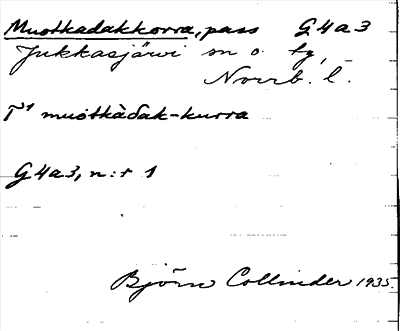 Muotkadakkorra, pass G4a3
Jukkasjärvi sn o. tg,
Norrb. l.
T¹ muo̓tkàđak-kurra
G4a3, n:r 1
Björn Collinder 1935.